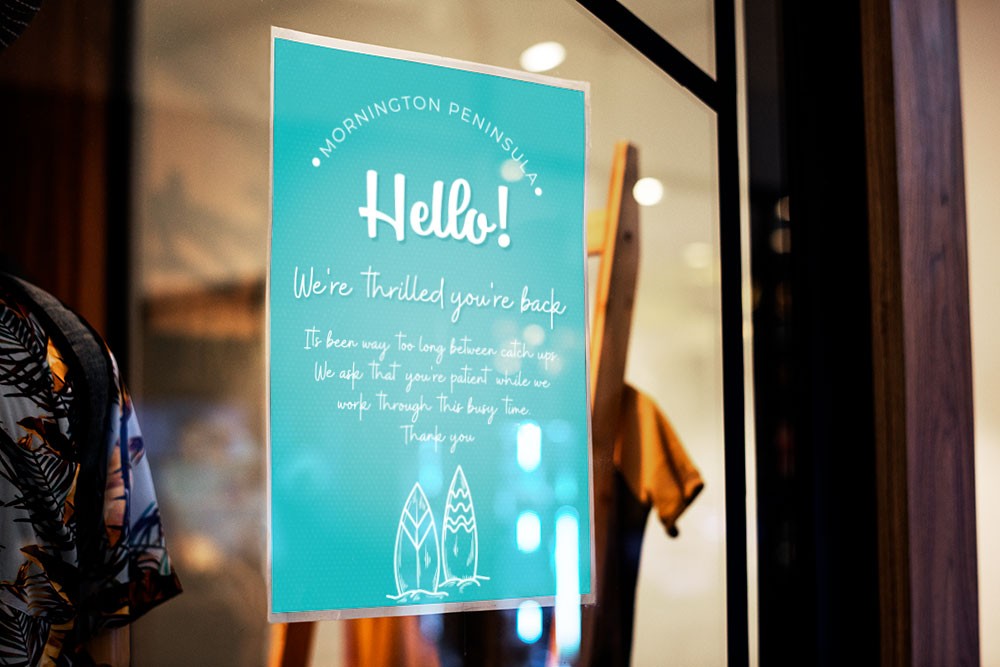 MORNINGTON PENINSULA
Hello!
We're thrilled you're back
It's been way too long between catch ups.
We ask that you're patient while we
work through this busy time.
Thank you